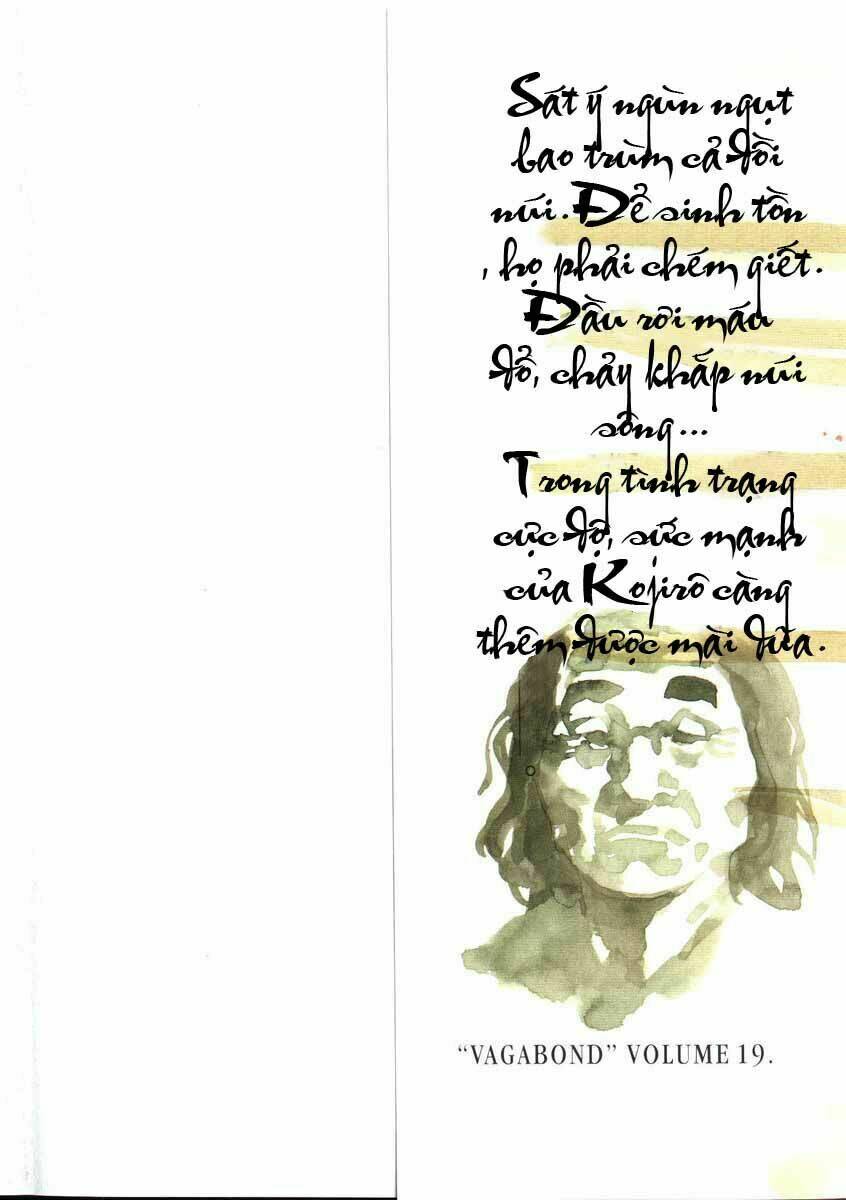 Sát ý ngùn ngụt
bao trùm cả đồi
núi. Để sinh tồn
, họ phải chém giết.
Đầu rơi máu
đổ, chảy khắp núi
sông...
Trong tình trạng
cực độ, sức mạnh
của Kojirô càng
thêm được mài dũa.
"VAGABOND" VOLUME 19.